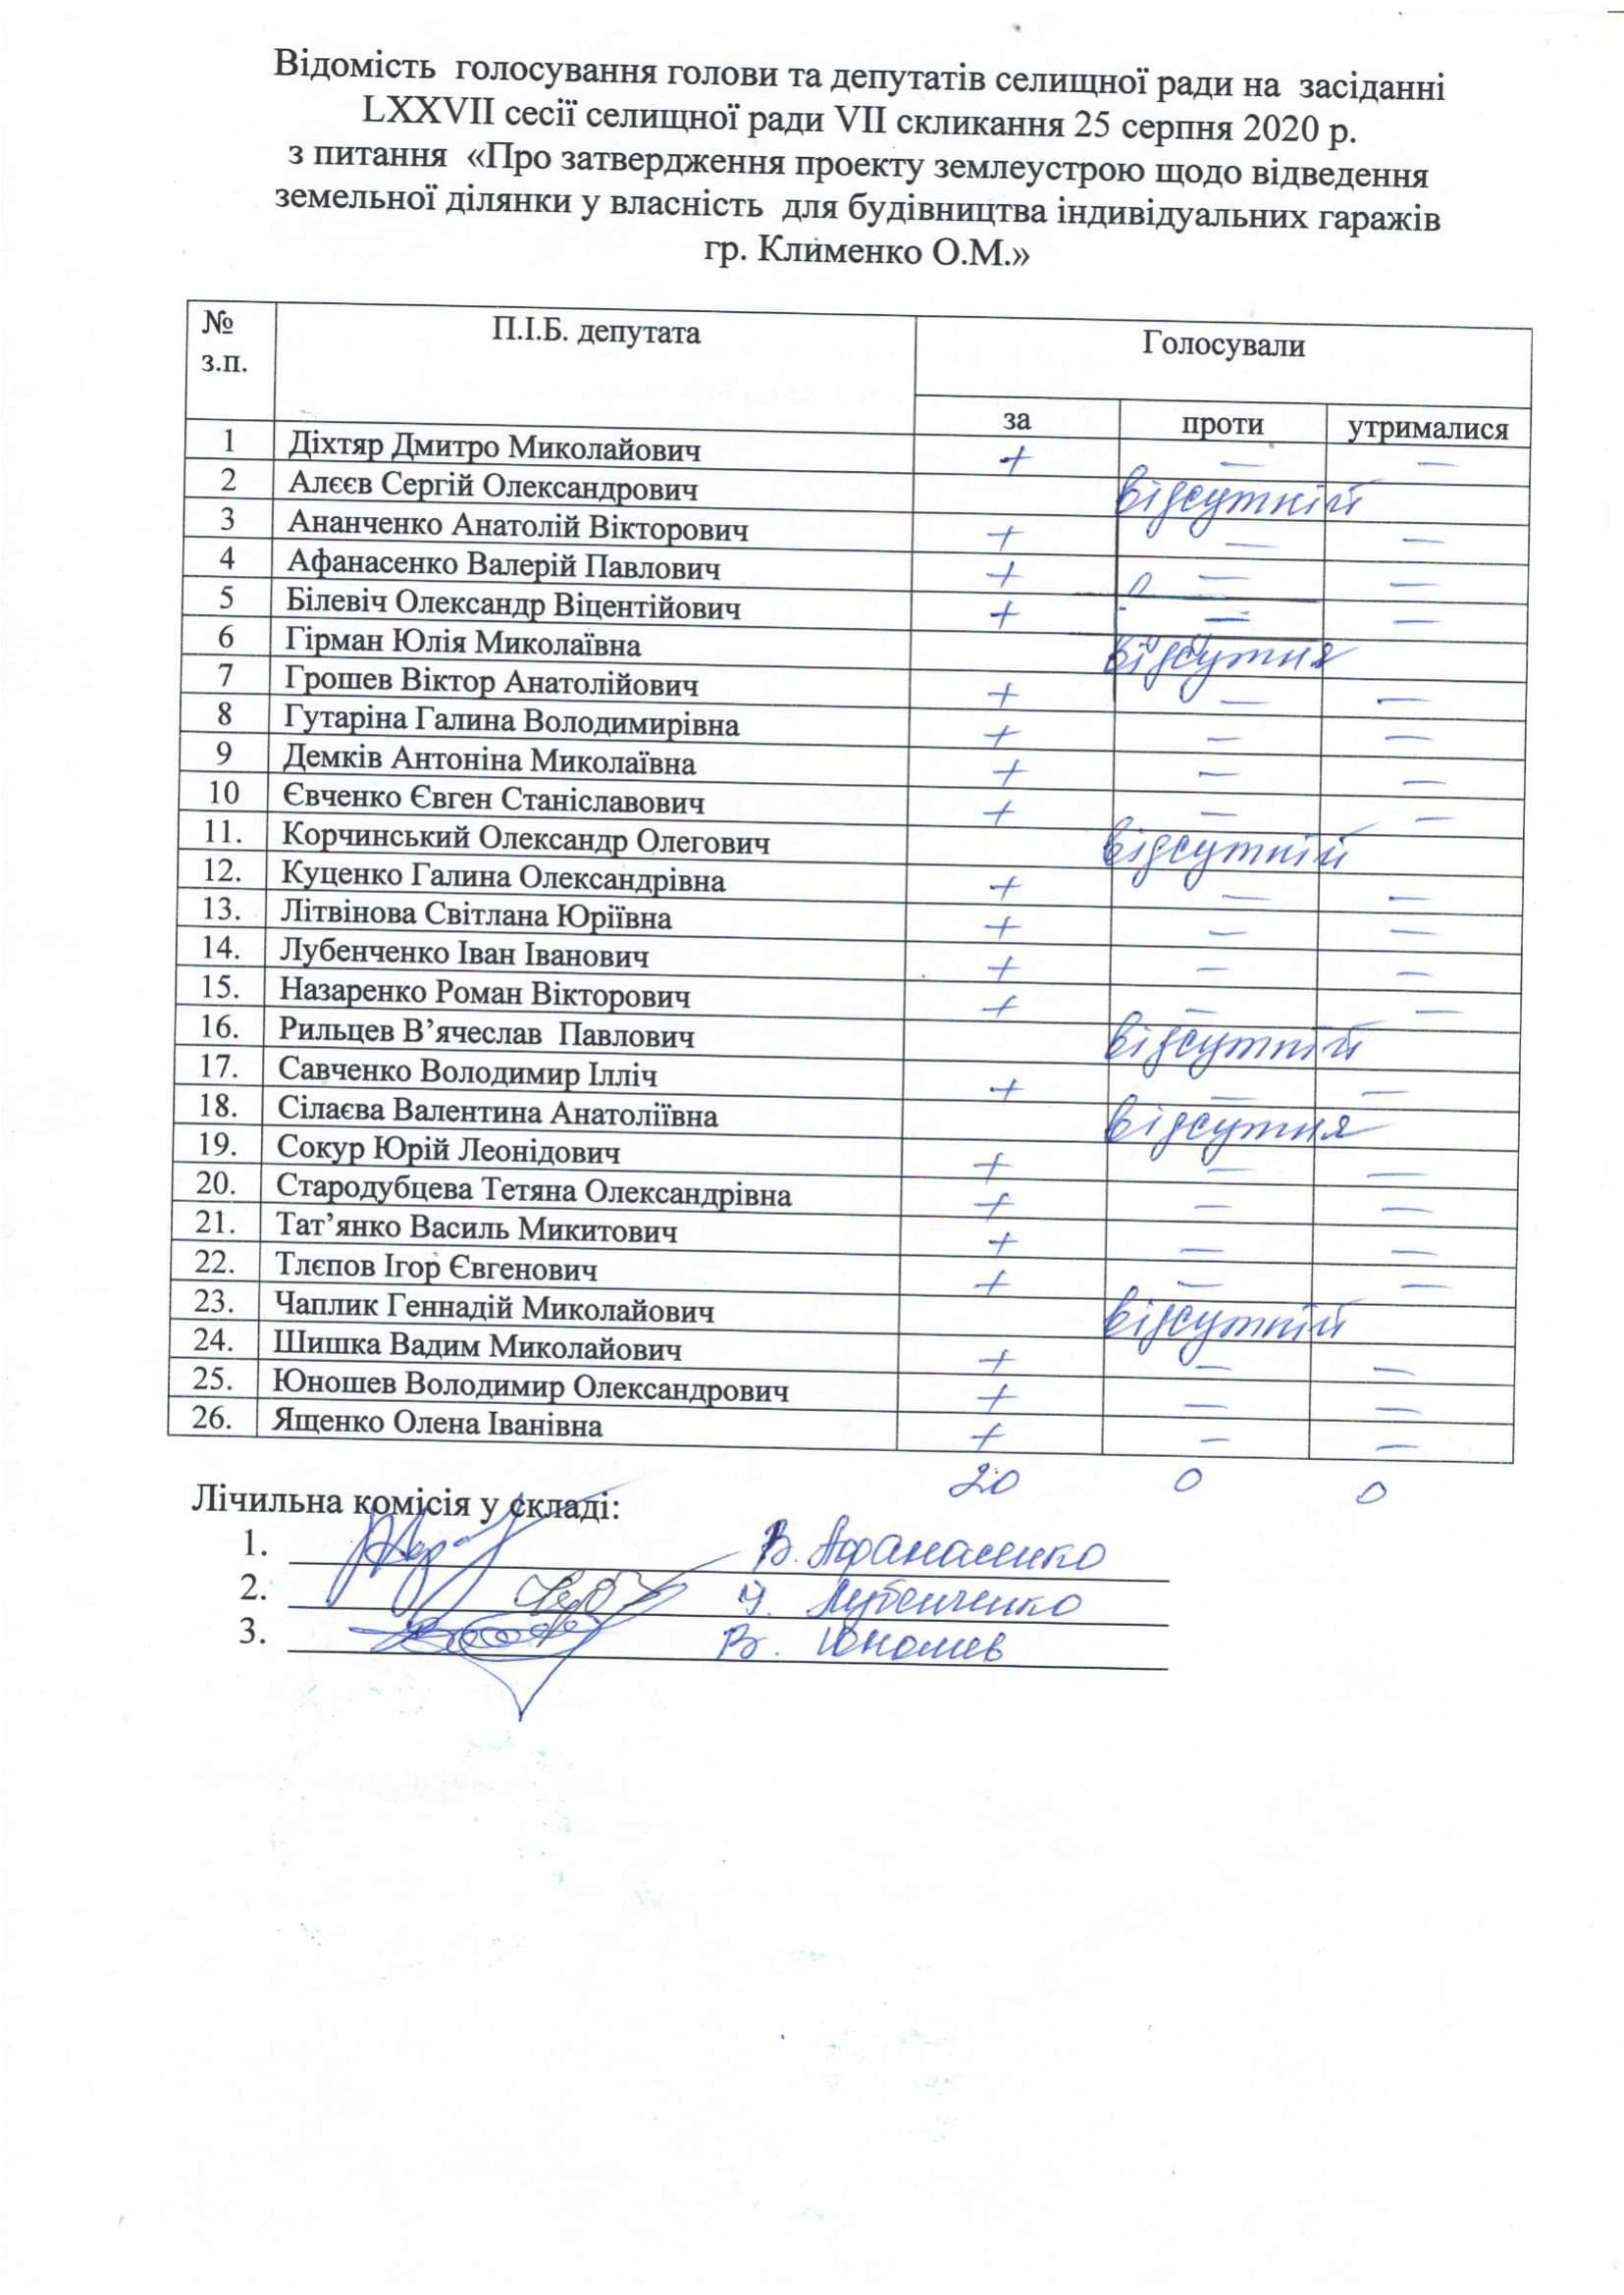 Відомість голосування голови та депутатів селищної ради на засіданні
LXXVII сесії селищної ради VII скликання 25 серпня 2020 р.
з питання «Про затвердження проекту землеустрою щодо відведення
земельної ділянки у власність для будівництва індивідуальних гаражів
гр. Клименко О.М.»
№ з.п. П.І.Б. депутата Голосували
за проти утрималися
1 Діхтяр Дмитро Миколайович + — —
2 Алєєв Сергій Олександрович відсутній
3 Ананченко Анатолій Вікторович + — —
4 Афанасенко Валерій Павлович + — —
5 Білевіч Олександр Віцентійович + — —
6 Гірман Юлія Миколаївна відсутня
7 Грошев Віктор Анатолійович + — —
8 Гутаріна Галина Володимирівна + — —
9 Демків Антоніна Миколаївна + — —
10 Євченко Євген Станіславович + — —
11. Корчинський Олександр Олегович відсутній
12. Куценко Галина Олександрівна + — —
13. Літвінова Світлана Юріївна + — —
14. Лубенченко Іван Іванович + — —
15. Назаренко Роман Вікторович + — —
16. Рильцев В’ячеслав Павлович відсутній
17. Савченко Володимир Ілліч + — —
18. Сілаєва Валентина Анатоліївна відсутня
19. Сокур Юрій Леонідович + — —
20. Стародубцева Тетяна Олександрівна + — —
21. Тат’янко Василь Микитович + — —
22. Тлєпов Ігор Євгенович + — —
23. Чаплик Геннадій Миколайович відсутній
24. Шишка Вадим Миколайович + — —
25. Юношев Володимир Олександрович + — —
26. Ященко Олена Іванівна + — —
20 0 0
Лічильна комісія у складі:
1. В. Афанасенко
2. І. Лубенченко
3. В. Юношев